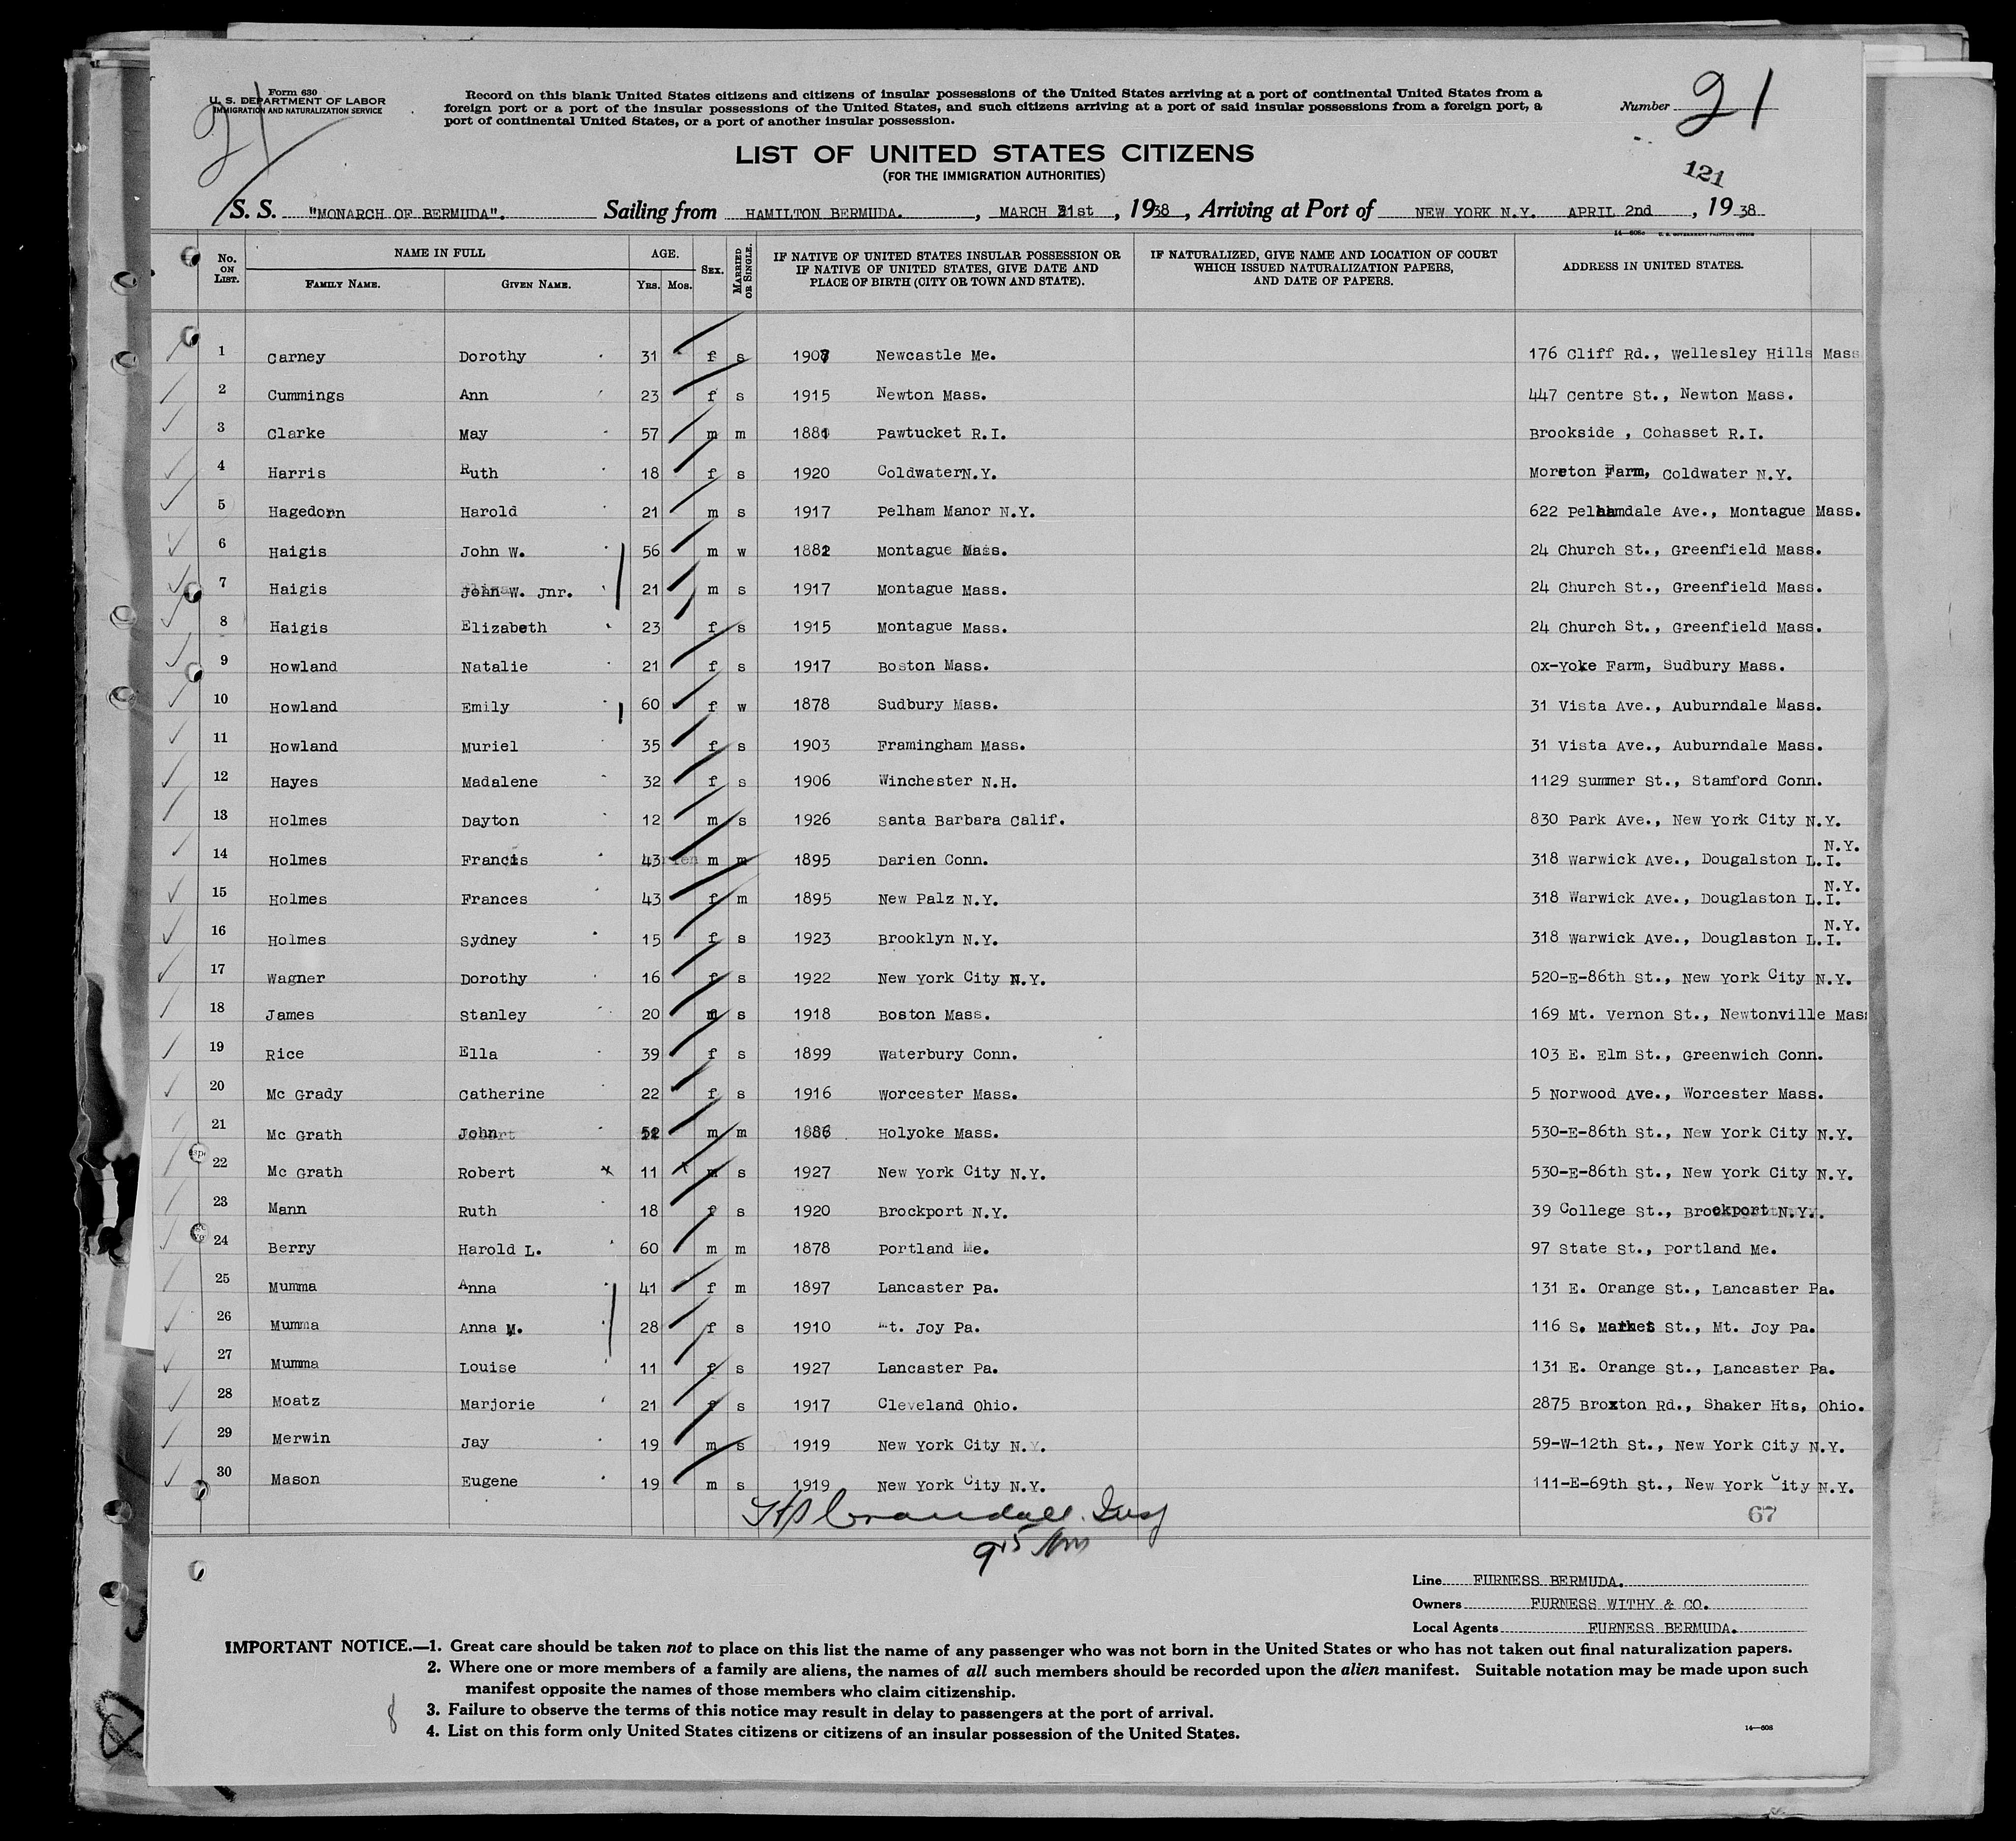 Form 630
U. S. DEPARTMENT OF LABOR
IMMIGRATION AND NATURALIZATION SERVICE
21
Record on this blank United States citizens and citizens of insular possessions of the United States arriving at a port of continental United States from a
foreign port or a port of the insular possessions of the United States, and such citizens arriving at a port of said insular possessions from a foreign port, a
port of continental United States, or a port of another insular possession.
Number 21
121
LIST OF UNITED STATES CITIZENS
(FOR THE IMMIGRATION AUTHORITIES)
S. S. "MONARCH OF BERMUDA". Sailing from HAMILTON BERMUDA. , MARCH 31st , 1938 , Arriving at Port of NEW YORK N.Y. APRIL 2nd , 1938
14—608c U. S. GOVERNMENT PRINTING OFFICE
No. ON LIST. NAME IN FULL FAMILY NAME. GIVEN NAME. AGE. YRS. MOS. SEX. MARRIED OR SINGLE. IF NATIVE OF UNITED STATES INSULAR POSSESSION OR IF NATIVE OF UNITED STATES, GIVE DATE AND PLACE OF BIRTH (CITY OR TOWN AND STATE). IF NATURALIZED, GIVE NAME AND LOCATION OF COURT WHICH ISSUED NATURALIZATION PAPERS, AND DATE OF PAPERS. ADDRESS IN UNITED STATES.
1 Carney Dorothy 31 f s 1907 Newcastle Me. 176 Cliff Rd., Wellesley Hills Mass
2 Cummings Ann 23 f s 1915 Newton Mass. 447 Centre St., Newton Mass.
3 Clarke May 57 m m 1881 Pawtucket R.I. Brookside , Cohasset R.I.
4 Harris Ruth 18 f s 1920 Coldwater N.Y. Moreton Farm, Coldwater N.Y.
5 Hagedorn Harold 21 m s 1917 Pelham Manor N.Y. 622 Pelhamdale Ave., Montague Mass.
6 Haigis John W. 56 m w 1882 Montague Mass. 24 Church St., Greenfield Mass.
7 Haigis John W. Jnr. 21 m s 1917 Montague Mass. 24 Church St., Greenfield Mass.
8 Haigis Elizabeth 23 f s 1915 Montague Mass. 24 Church St., Greenfield Mass.
9 Howland Natalie 21 f s 1917 Boston Mass. Ox-Yoke Farm, Sudbury Mass.
10 Howland Emily 60 f w 1878 Sudbury Mass. 31 Vista Ave., Auburndale Mass.
11 Howland Muriel 35 f s 1903 Framingham Mass. 31 Vista Ave., Auburndale Mass.
12 Hayes Madalene 32 f s 1906 Winchester N.H. 1129 Summer St., Stamford Conn.
13 Holmes Dayton 12 m s 1926 Santa Barbara Calif. 830 Park Ave., New York City N.Y.
14 Holmes Francis 43 m m 1895 Darien Conn. 318 Warwick Ave., Dougalston L.I. N.Y.
15 Holmes Frances 43 f m 1895 New Palz N.Y. 318 Warwick Ave., Douglaston L.I. N.Y.
16 Holmes Sydney 15 f s 1923 Brooklyn N.Y. 318 Warwick Ave., Douglaston L.I. N.Y.
17 Wagner Dorothy 16 f s 1922 New York City N.Y. 520-E-86th St., New York City N.Y.
18 James Stanley 20 m s 1918 Boston Mass. 169 Mt. Vernon St., Newtonville Mass
19 Rice Ella 39 f s 1899 Waterbury Conn. 103 E. Elm St., Greenwich Conn.
20 Mc Grady Catherine 22 f s 1916 Worcester Mass. 5 Norwood Ave., Worcester Mass.
21 Mc Grath John 52 m m 1886 Holyoke Mass. 530-E-86th St., New York City N.Y.
22 Mc Grath Robert x 11 m s 1927 New York City N.Y. 530-E-86th St., New York City N.Y.
23 Mann Ruth 18 f s 1920 Brockport N.Y. 39 College St., Brockport N.Y.
24 Berry Harold L. 60 m m 1878 Portland Me. 97 State St., Portland Me.
25 Mumma Anna 41 f m 1897 Lancaster Pa. 131 E. Orange St., Lancaster Pa.
26 Mumma Anna M. 28 f s 1910 Mt. Joy Pa. 116 S. Market St., Mt. Joy Pa.
27 Mumma Louise 11 f s 1927 Lancaster Pa. 131 E. Orange St., Lancaster Pa.
28 Moatz Marjorie 21 f s 1917 Cleveland Ohio. 2875 Broxton Rd., Shaker Hts, Ohio.
29 Merwin Jay 19 m s 1919 New York City N.Y. 59-W-12th St., New York City N.Y.
30 Mason Eugene 19 m s 1919 New York City N.Y. 111-E-69th St., New York City N.Y.
Crandall. Insp
67
9 15 Am
Line FURNESS BERMUDA.
Owners FURNESS WITHY & CO.
Local Agents FURNESS BERMUDA.
IMPORTANT NOTICE.—1. Great care should be taken not to place on this list the name of any passenger who was not born in the United States or who has not taken out final naturalization papers.
2. Where one or more members of a family are aliens, the names of all such members should be recorded upon the alien manifest. Suitable notation may be made upon such
manifest opposite the names of those members who claim citizenship.
3. Failure to observe the terms of this notice may result in delay to passengers at the port of arrival.
4. List on this form only United States citizens or citizens of an insular possession of the United States.
8
14—608